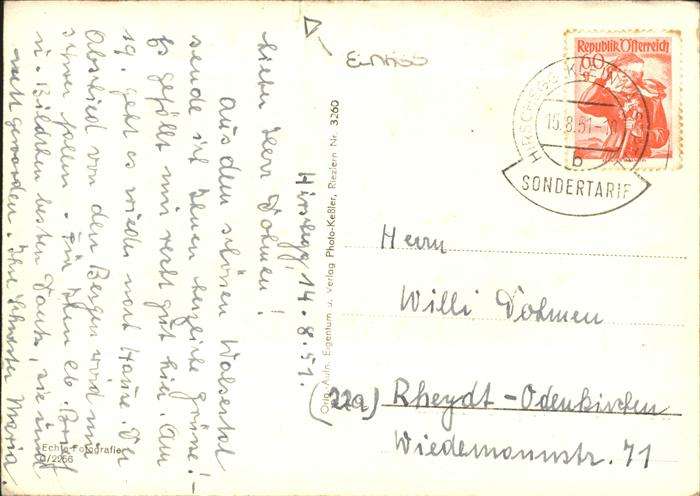 Hirschegg, 14.8.51.
Lieber Herr Dohmen!
Aus dem schönen Walsertal
sende ich Ihnen herzliche Grüße! –
Es gefällt mir recht gut hier. Am
19. geht es wieder nach Hause. Der
Abschied von den Bergen wird mir
schwer fallen. Für Ihren lb. Brief
u. Bildchen besten Dank, sie sind
nett geworden. Ihre Schwester Maria
Echte Fotografie
/2256
Orig.-Aufn. Eigentum u. Verlag Photo-Keßler, Riezlern Nr. 3260
Republik Österreich
60
15.8.51
b
SONDERTARIF
Herrn
Willi Dohmen
(22a) Rheydt-Odenkirchen
Wiedemannstr. 71